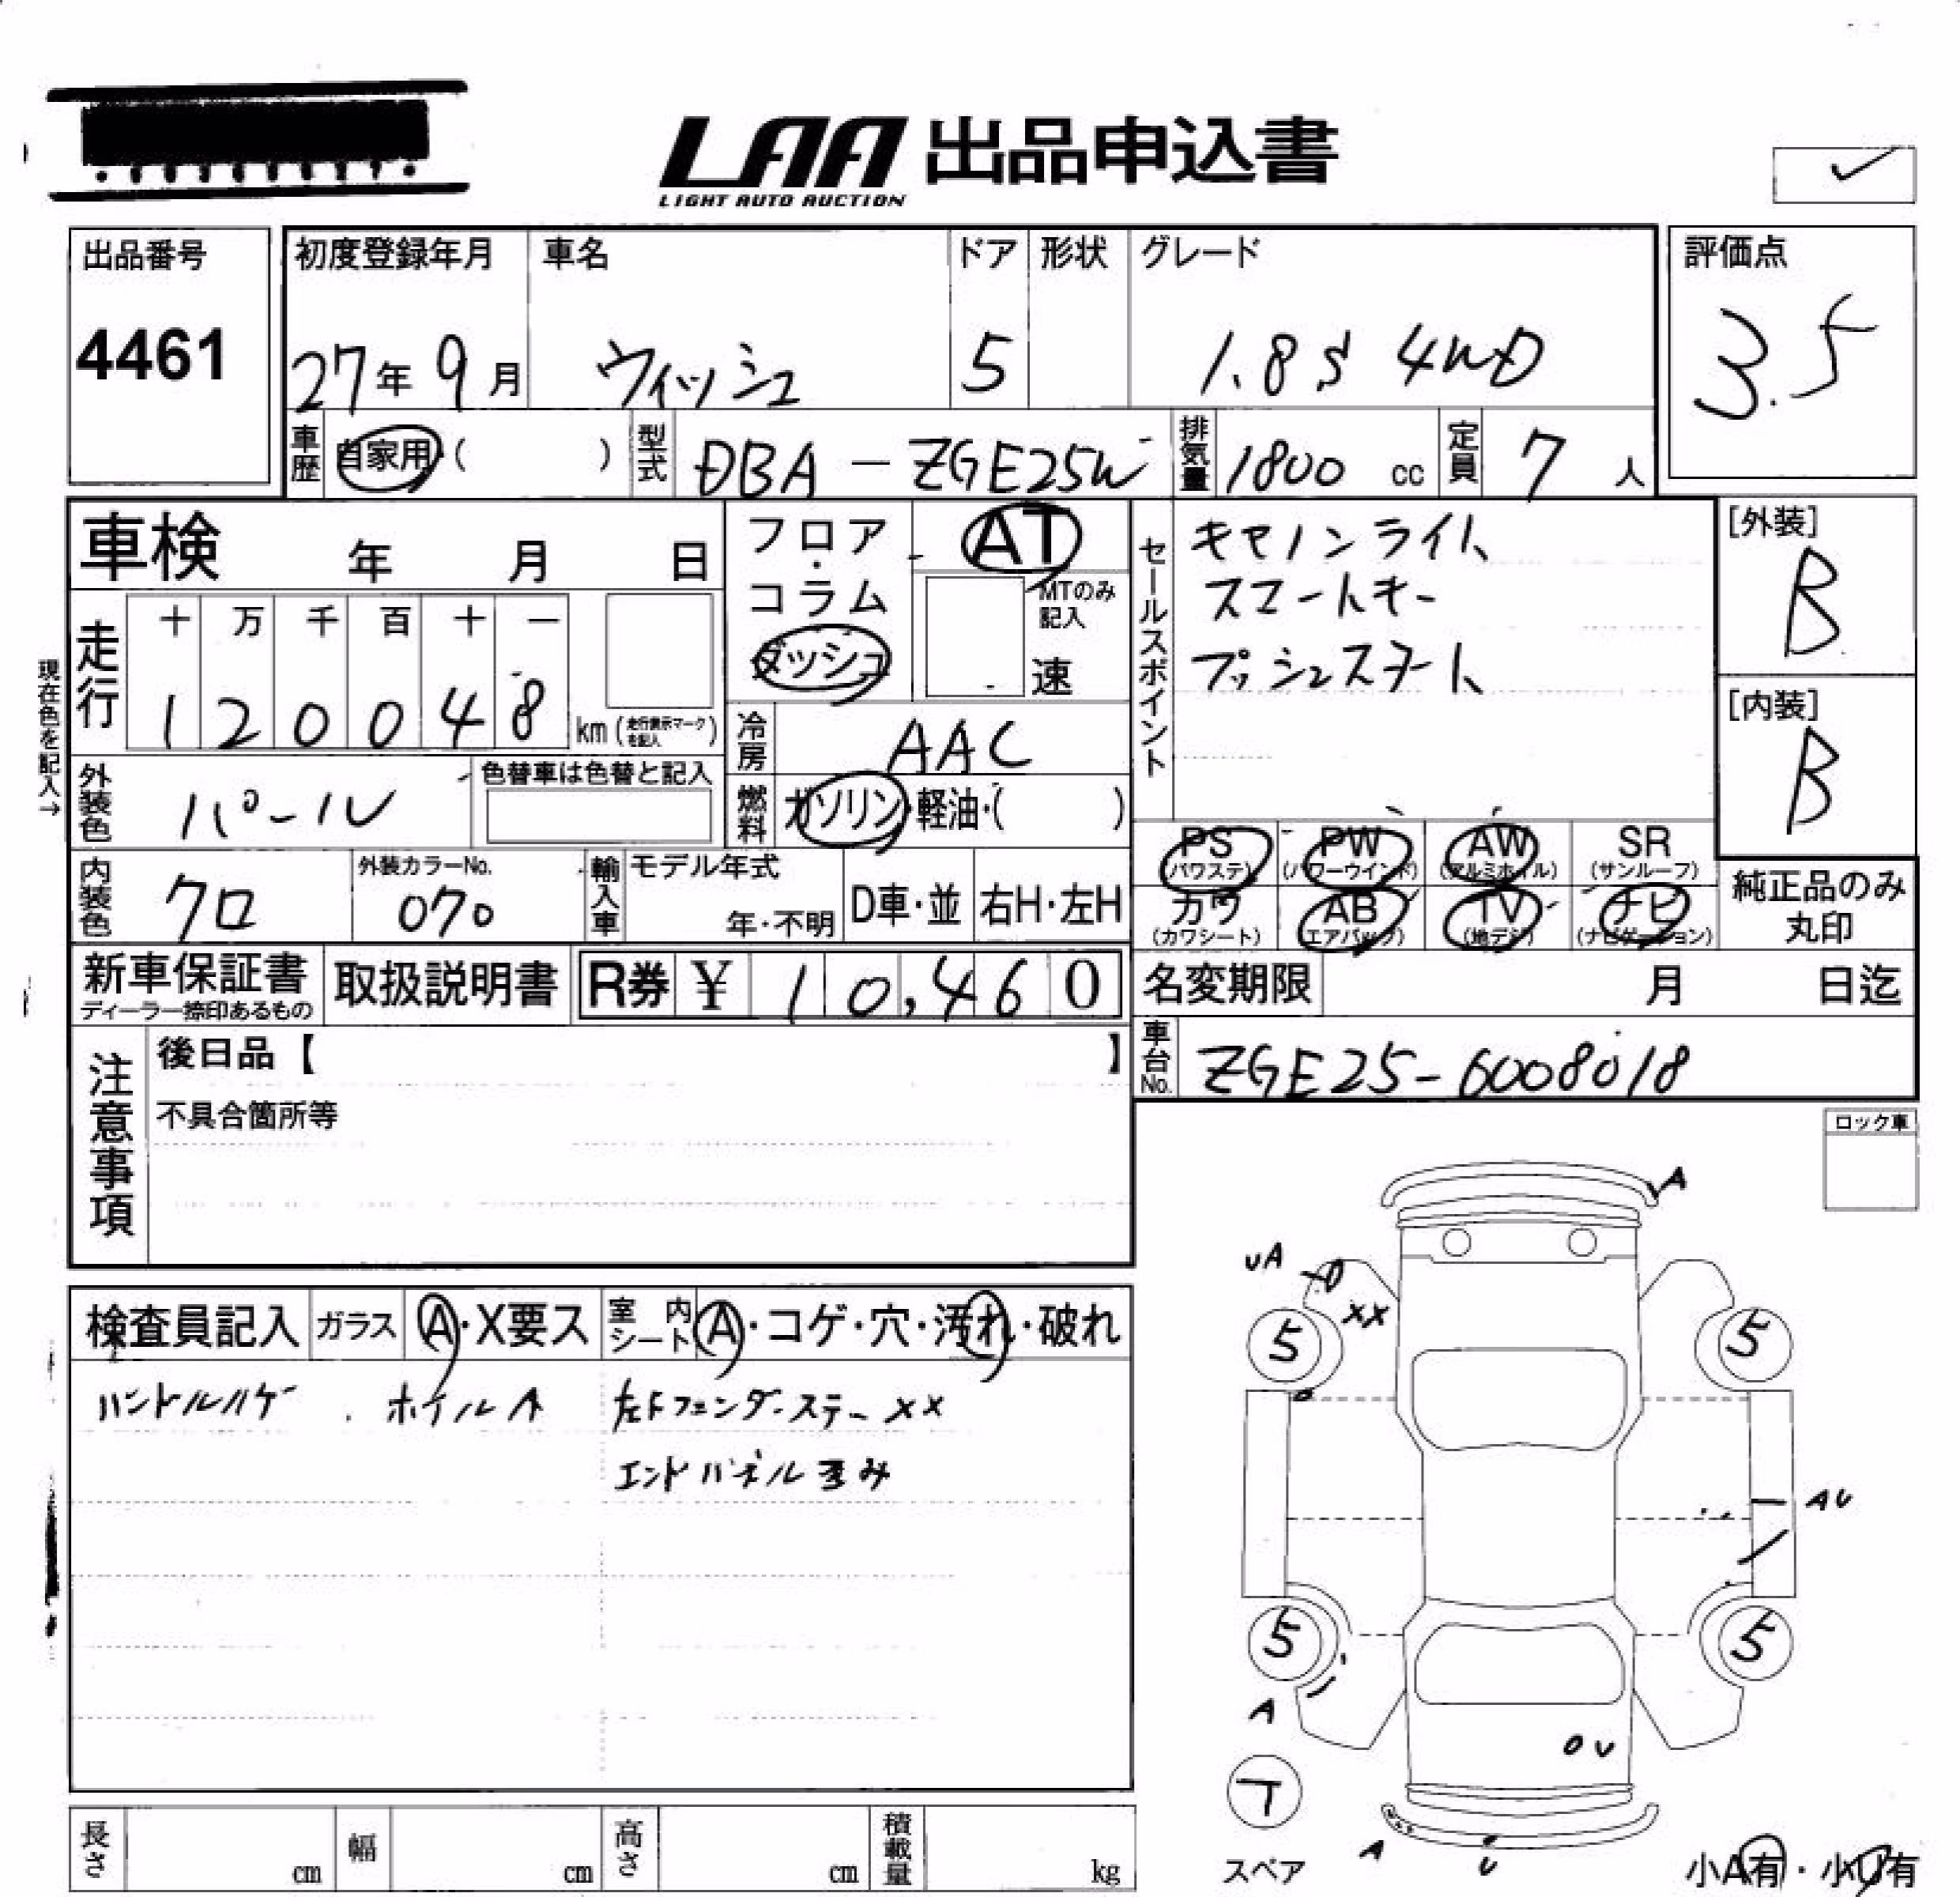 LAA 出品申込書
LIGHT AUTO AUCTION
出品番号
4461
初度登録年月
27年9月
車名
ウィッシュ
ドア
5
形状
グレード
1.8S 4WD
評価点
3.5
車歴
自家用・( )
型式
DBA-ZGE25W
排気量
1800 cc
定員
7人
車検 年 月 日
フロア・コラム
ダッシュ
AT
MTのみ記入
速
セールスポイント
キセノンライト
スマートキー
プッシュスタート
[外装]
B
[内装]
B
現在色を記入→
走行
十 万 千 百 十 一
1 2 0 0 4 8 km (走行表示マークを記入)
冷房
AAC
外装色
パール
色替車は色替と記入
燃料
ガソリン・軽油・( )
PS (パワステ)
PW (パワーウインド)
AW (アルミホイル)
SR (サンルーフ)
カワ (カワシート)
AB (エアバック)
TV (地デジ)
ナビ (ナビゲーション)
純正品のみ丸印
内装色
クロ
外装カラーNo.
070
輸入車
モデル年式
年・不明
D車・並
右H・左H
新車保証書
ディーラー捺印あるもの
取扱説明書
R券 ¥ 10,460
名変期限 月 日迄
車台No.
ZGE25-6008018
注意事項
後日品【 】
不具合箇所等
ロック車
検査員記入
ガラス
A・X要ス
室内シート
A・コゲ・穴・汚れ・破れ
ハンドルハゲ . ホイルA
左Fフェンダーステー XX
エンドパネル歪み
A
UA
XX
5
5
AU
5
5
A
U
T
スペア
A
U
小A有・小U有
長さ cm
幅 cm
高さ cm
積載量 kg